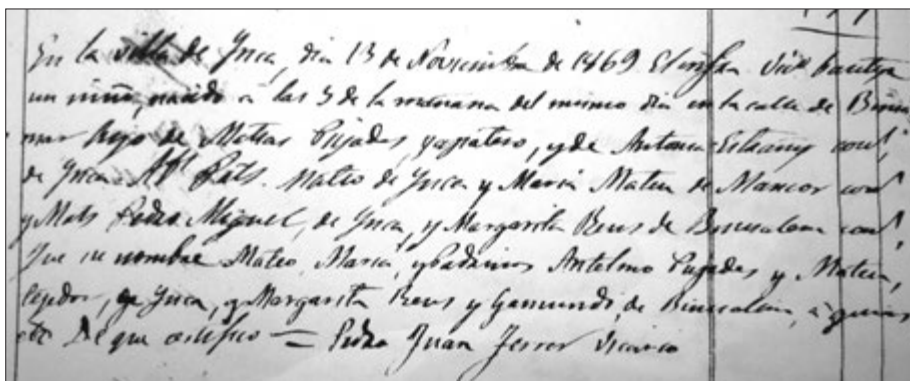 En la villa de Ynca, dia 13 de Noviembre de 1869 El infra Vic.º bautizé
un niño, nacido a las 3 de la mañana del mismo dia en la calle de
hijo de Matias Pujades, zapatero, y de Antonia Estrany cons.
de Ynca. Ab.s Pats. Mateo de Ynca y Maria Mateu de Mancor cons.
y Mats Pedro Miguel, de Ynca, y Margarita Beus de Binisalem cons.
Fue su nombre Mateo, Maria, y Padrinos Antelmo Pujades y Mateu,
tejedor, de Ynca, y Margarita Beus y Gamundi, de Binisalem, á quienes
etc De que certifico = Pedro Juan Ferrer Vicario